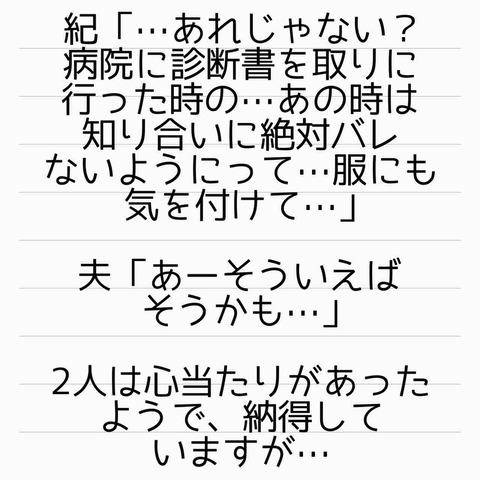 紀「…あれじゃない？
病院に診断書を取りに
行った時の…あの時は
知り合いに絶対バレ
ないようにって…服にも
気を付けて…」
夫「あーそういえば
そうかも…」
2人は心当たりがあった
ようで、納得して
いますが…